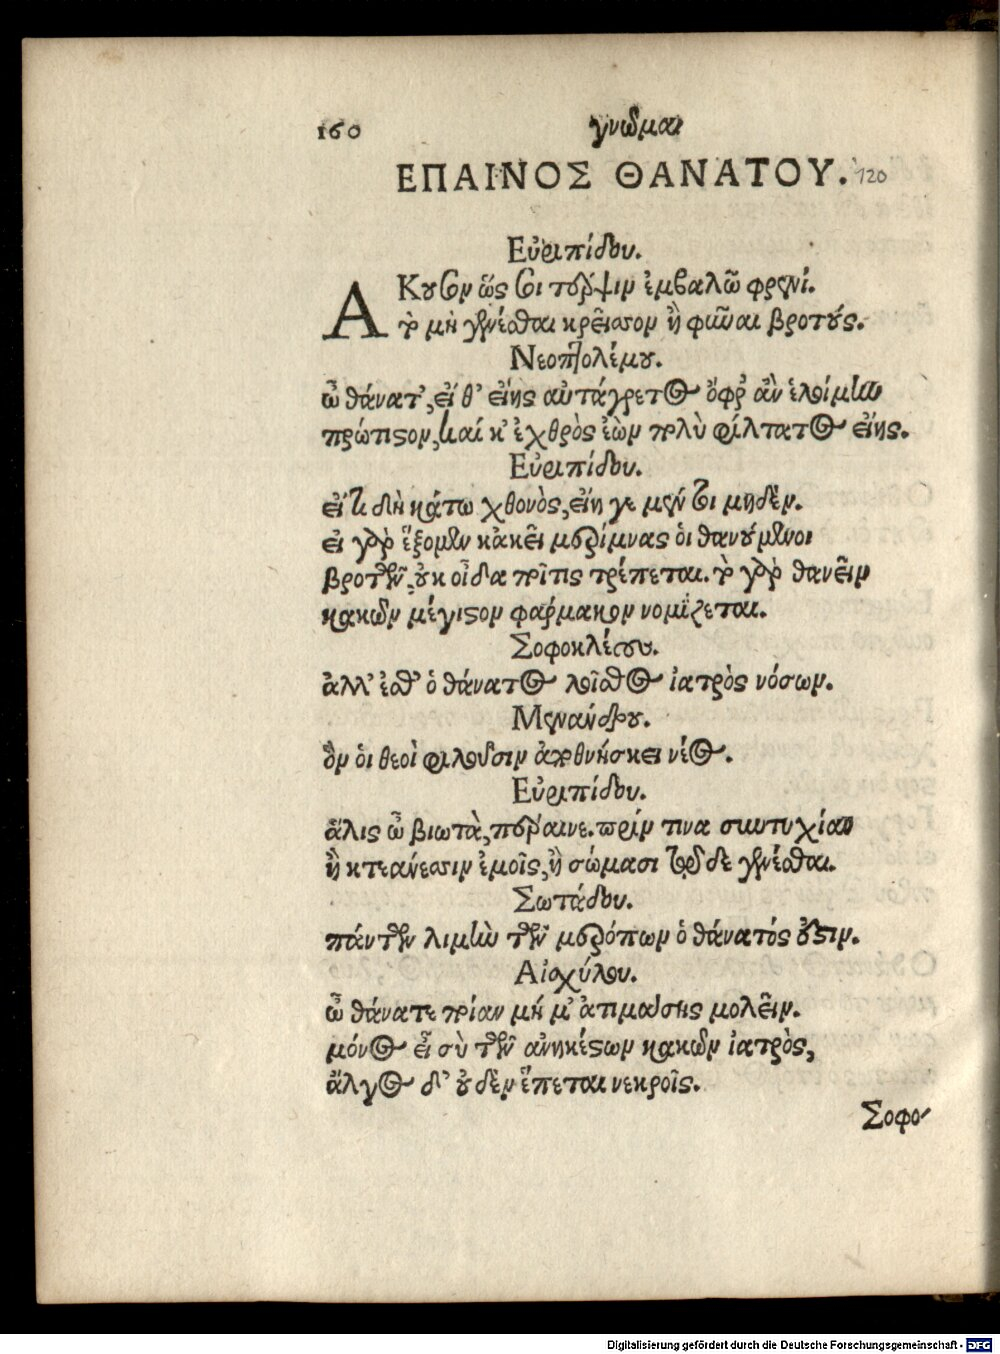 160
γνῶμαι
ΕΠΑΙΝΟΣ ΘΑΝΑΤΟΥ.
120
Εὐριπίδου.
ΑΚουσον ὥς σοι τέρψιν ἐμβαλῶ φρενί.
τὸ μὴ γενέσθαι κρεῖσσον ἢ φῦναι βροτούς.
Νεοπτολέμου.
ὦ θάνατ', εἴ θ' εἴης αὐτάγρετος ὄφρ' ἂν ἑλοίμην
πρώτιστον, καί κ' ἐχθρὸς ἐὼν πολὺ φίλτατος εἴης.
Εὐριπίδου.
εἴ τι δὴ κάτω χθονὸς, εἴη γε μέν τοι μηδέν.
εἰ γὰρ ἕξομεν κἀκεῖ μερίμνας οἱ θανούμενοι
βροτῶν, οὐκ οἶδα ποῖ τις τρέπεται. τὸ γὰρ θανεῖν
κακῶν μέγιστον φάρμακον νομίζεται.
Σοφοκλέους.
ἀλλ' ἔσθ' ὁ θάνατος λοῖσθος ἰατρὸς νόσων.
Μενάνδρου.
ὃν οἱ θεοὶ φιλοῦσιν ἀποθνήσκει νέος.
Εὐριπίδου.
ἅλις ὦ βιωτὰ, πέραινε. πρίν τινα συντυχίαν
ἢ κτεάνεσσιν ἐμοῖς, ἢ σώματι τῷ δε γενέσθαι.
Σωτάδου.
πάντων λιμὴν τῶν μερόπων ὁ θάνατός ἐστιν.
Αἰσχύλου.
ὦ θάνατε ποίαν μή μ' ἀτιμάσῃς μολεῖν.
μόνος εἶ σὺ τῶν ἀνηκέστων κακῶν ἰατρὸς,
ἄλγος δ' οὐδὲν ἕπεται νεκροῖς.
Σοφο-
Digitalisierung gefördert durch die Deutsche Forschungsgemeinschaft - DFG